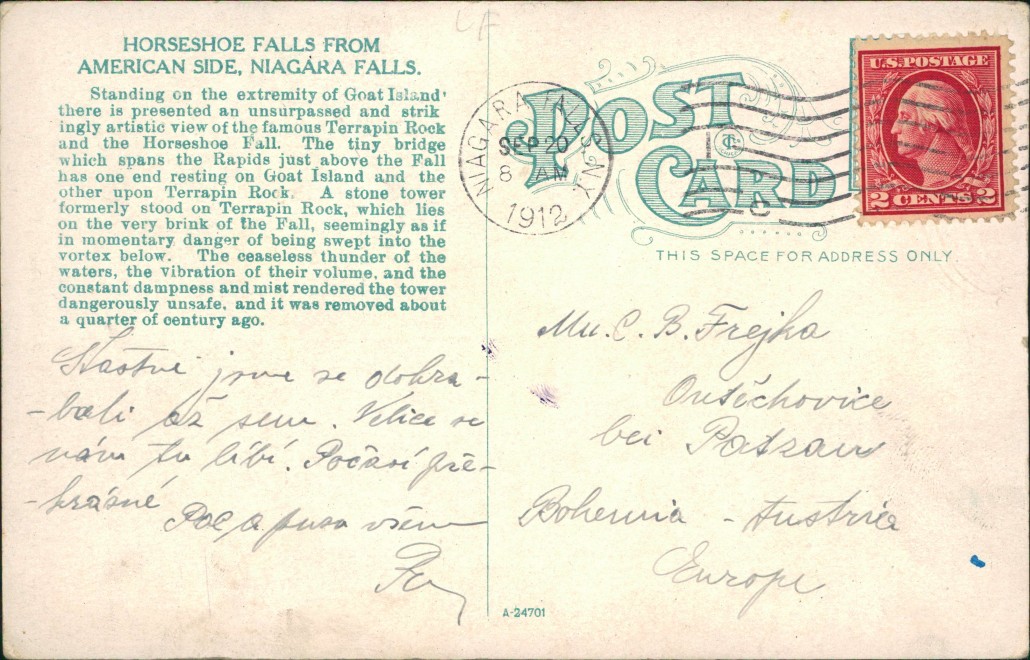 HORSESHOE FALLS FROM
AMERICAN SIDE, NIAGARA FALLS.
Standing on the extremity of Goat Island
there is presented an unsurpassed and strik
ingly artistic view of the famous Terrapin Rock
and the Horseshoe Fall. The tiny bridge
which spans the Rapids just above the Fall
has one end resting on Goat Island and the
other upon Terrapin Rock. A stone tower
formerly stood on Terrapin Rock, which lies
on the very brink of the Fall, seemingly as if
in momentary danger of being swept into the
vortex below. The ceaseless thunder of the
waters, the vibration of their volume, and the
constant dampness and mist rendered the tower
dangerously unsafe, and it was removed about
a quarter of century ago.
Šťastně jsme se dohra-
-bali až sem. Velice se
nám tu líbí. Počasí pře-
-krásné
Pac a pusu všem
LF
POST CARD
NIAGARA FALLS NY
SEP 20
8 AM
1912
U.S. POSTAGE
2 CENTS 2
THIS SPACE FOR ADDRESS ONLY.
C. B. Frejka
Outěchovice
bei Patzau
Bohemia - Austria
Europe
A-24701